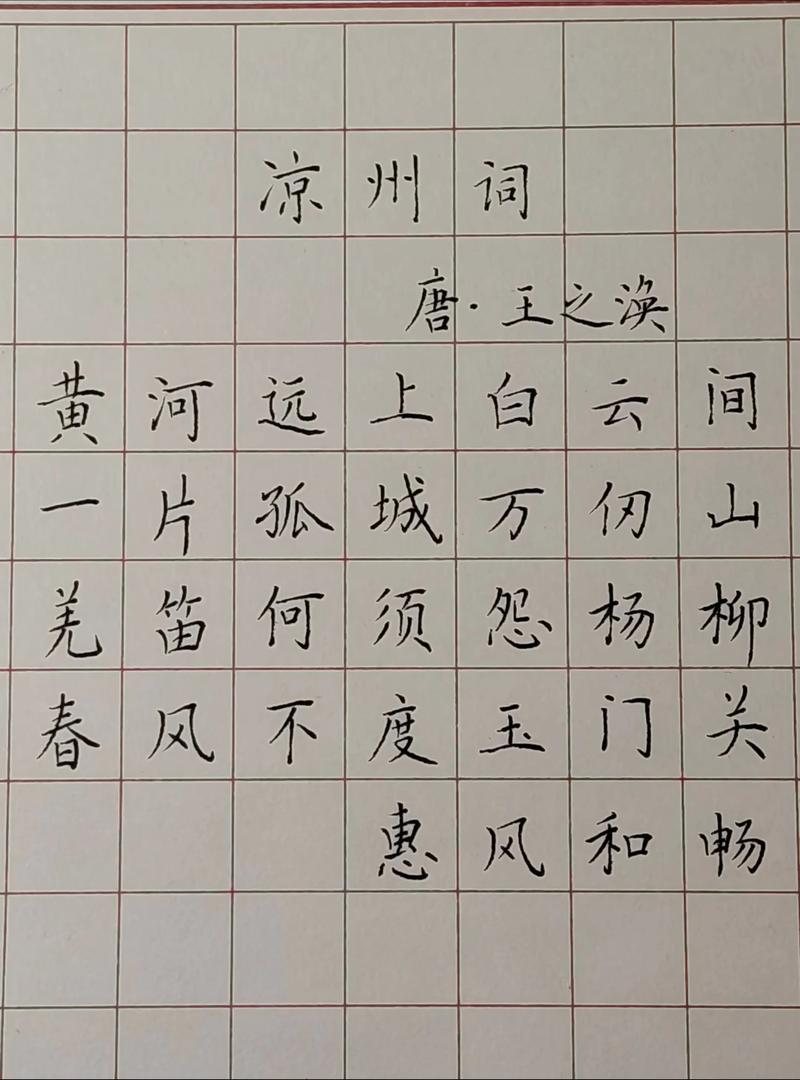 凉州词
唐·王之涣
黄河远上白云间
一片孤城万仞山
羌笛何须怨杨柳
春风不度玉门关
惠风和畅